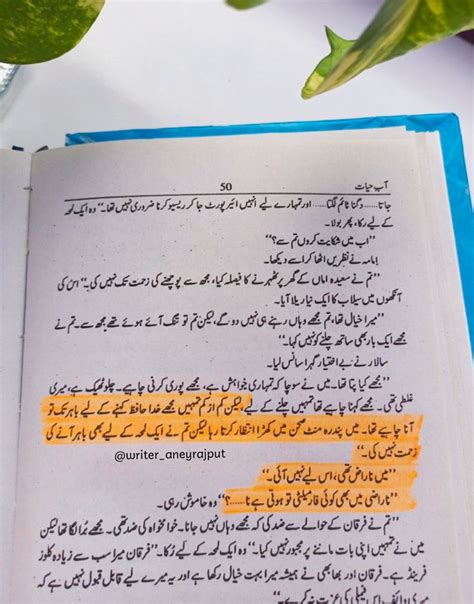 آب حیات
50
جاتا...... دگنا ٹائم لگتا...... اور تمہارے لیے انہیں ائیر پورٹ جا کر ریسیو کرنا ضروری نہیں تھا۔“ وہ ایک لمحہ
کے لیے رکا، پھر بولا۔
”اب میں شکایت کروں تم سے؟“
امامہ نے نظریں اٹھا کر اسے دیکھا۔
”تم نے سعیدہ اماں کے گھر پر ٹھہرنے کا فیصلہ کیا، مجھ سے پوچھنے کی زحمت تک نہیں کی۔“ اس کی
آنکھوں میں سیلاب کا ایک نیا ریلا آیا۔
”میرا خیال تھا، تم مجھے وہاں رہنے ہی نہیں دو گے، لیکن تم تو تنگ آئے ہوئے تھے مجھ سے۔ تم نے
مجھے ایک بار بھی ساتھ چلنے کو نہیں کہا۔“
سالار نے بے اختیار گہرا سانس لیا۔
”مجھے کیا پتا تھا۔ میں نے سوچا کہ تمہاری خواہش ہے، مجھے پوری کرنی چاہیے۔ چلو ٹھیک ہے، میری
غلطی تھی۔ مجھے کہنا چاہیے تھا تمہیں چلنے کے لیے، لیکن کم از کم تمہیں مجھے خدا حافظ کہنے کے لیے باہر تک تو
آنا چاہیے تھا۔ میں پندرہ منٹ صحن میں کھڑا انتظار کرتا رہا لیکن تم نے ایک لمحہ کے لیے بھی باہر آنے کی
زحمت نہیں کی۔“
@writer_aneyrajput
”میں ناراض تھی، اس لیے نہیں آئی۔“
”ناراضی میں بھی کوئی فارمیلٹی تو ہوتی ہے نا......؟“ وہ خاموش رہی۔
”تم نے فرقان کے حوالے سے ضد کی کہ مجھے وہاں نہیں جانا۔ خوامخواہ کی ضد تھی۔ مجھے برا لگا تھا لیکن
میں نے تمہیں اپنی بات ماننے پر مجبور نہیں کیا۔“ وہ ایک لمحہ کے لیے رکا۔ ”فرقان میرا سب سے زیادہ کلوز
فرینڈ ہے۔ فرقان اور بھابھی نے ہمیشہ میرا بہت خیال رکھا ہے اور یہ میرے لیے قابل قبول نہیں ہے کہ
میری وائف اس فیملی کی عزت نہ کرے۔“